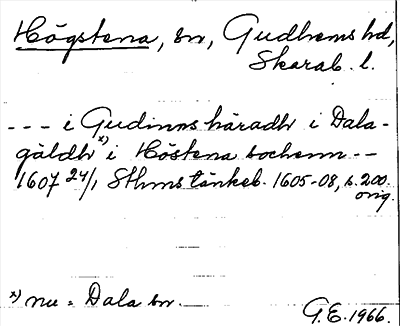 Högstena, sn, Gudhems hd,
Skarab. l.
--- i Gudinns häradh i Dala-
gäldh x) i Höstena sochenn --
1607 24/1 Sthms tänkeb. 1605-08, s. 200.
orig.
x) nu = Dala sn.
G.E. 1966.